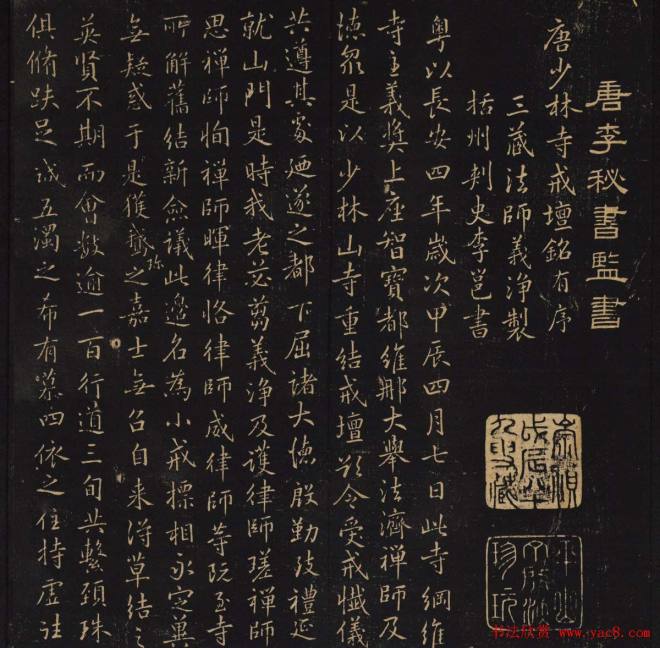 唐李秘書監書
唐少林寺戒壇銘有序
三藏法師義淨製
括州刺史李邕書
粵以長安四年歲次甲辰四月七日此寺綱維
寺主義奬上座智寶都維那大舉法濟禪師及
徳衆是以少林山寺重結戒壇欲令受戒懺儀
共遵其處迺遂之都下屈諸大徳殷勤致禮延
就山門是時我老苾蒭義淨及護律師瑳禪師
思禪師恂禪師暉律恪律師威律師等既至寺
所解舊結新僉議此邊名為小戒標相永定冀
無疑惑于是獲
珎
之嘉士無召自来淂草結之
英賢不期而會數逾一百行道三旬共繫頚珠
俱脩趺足誠五濁之希有慕四依之住持虛往
書法欣赏 www.yac8.com